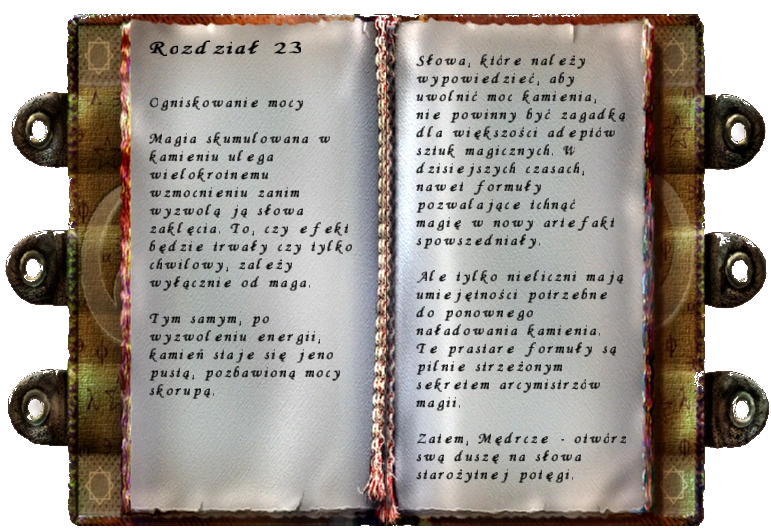 Rozdział 23
Ogniskowanie mocy
Magia skumulowana w
kamieniu ulega
wielokrotnemu
wzmocnieniu zanim
wyzwolą ją słowa
zaklęcia. To, czy efekt
będzie trwały czy tylko
chwilowy, zależy
wyłącznie od maga.
Tym samym, po
wyzwoleniu energii,
kamień staje się jeno
pustą, pozbawioną mocy
skorupą.
Słowa, które należy
wypowiedzieć, aby
uwolnić moc kamienia,
nie powinny być zagadką
dla większości adeptów
sztuk magicznych. W
dzisiejszych czasach,
nawet formuły
pozwalające tchnąć
magię w nowy artefakt
spowszedniały.
Ale tylko nieliczni mają
umiejętności potrzebne
do ponownego
naładowania kamienia.
Te prastare formuły są
pilnie strzeżonym
sekretem arcymistrzów
magii.
Zatem, Mędrcze - otwórz
swą duszę na słowa
starożytnej potęgi.